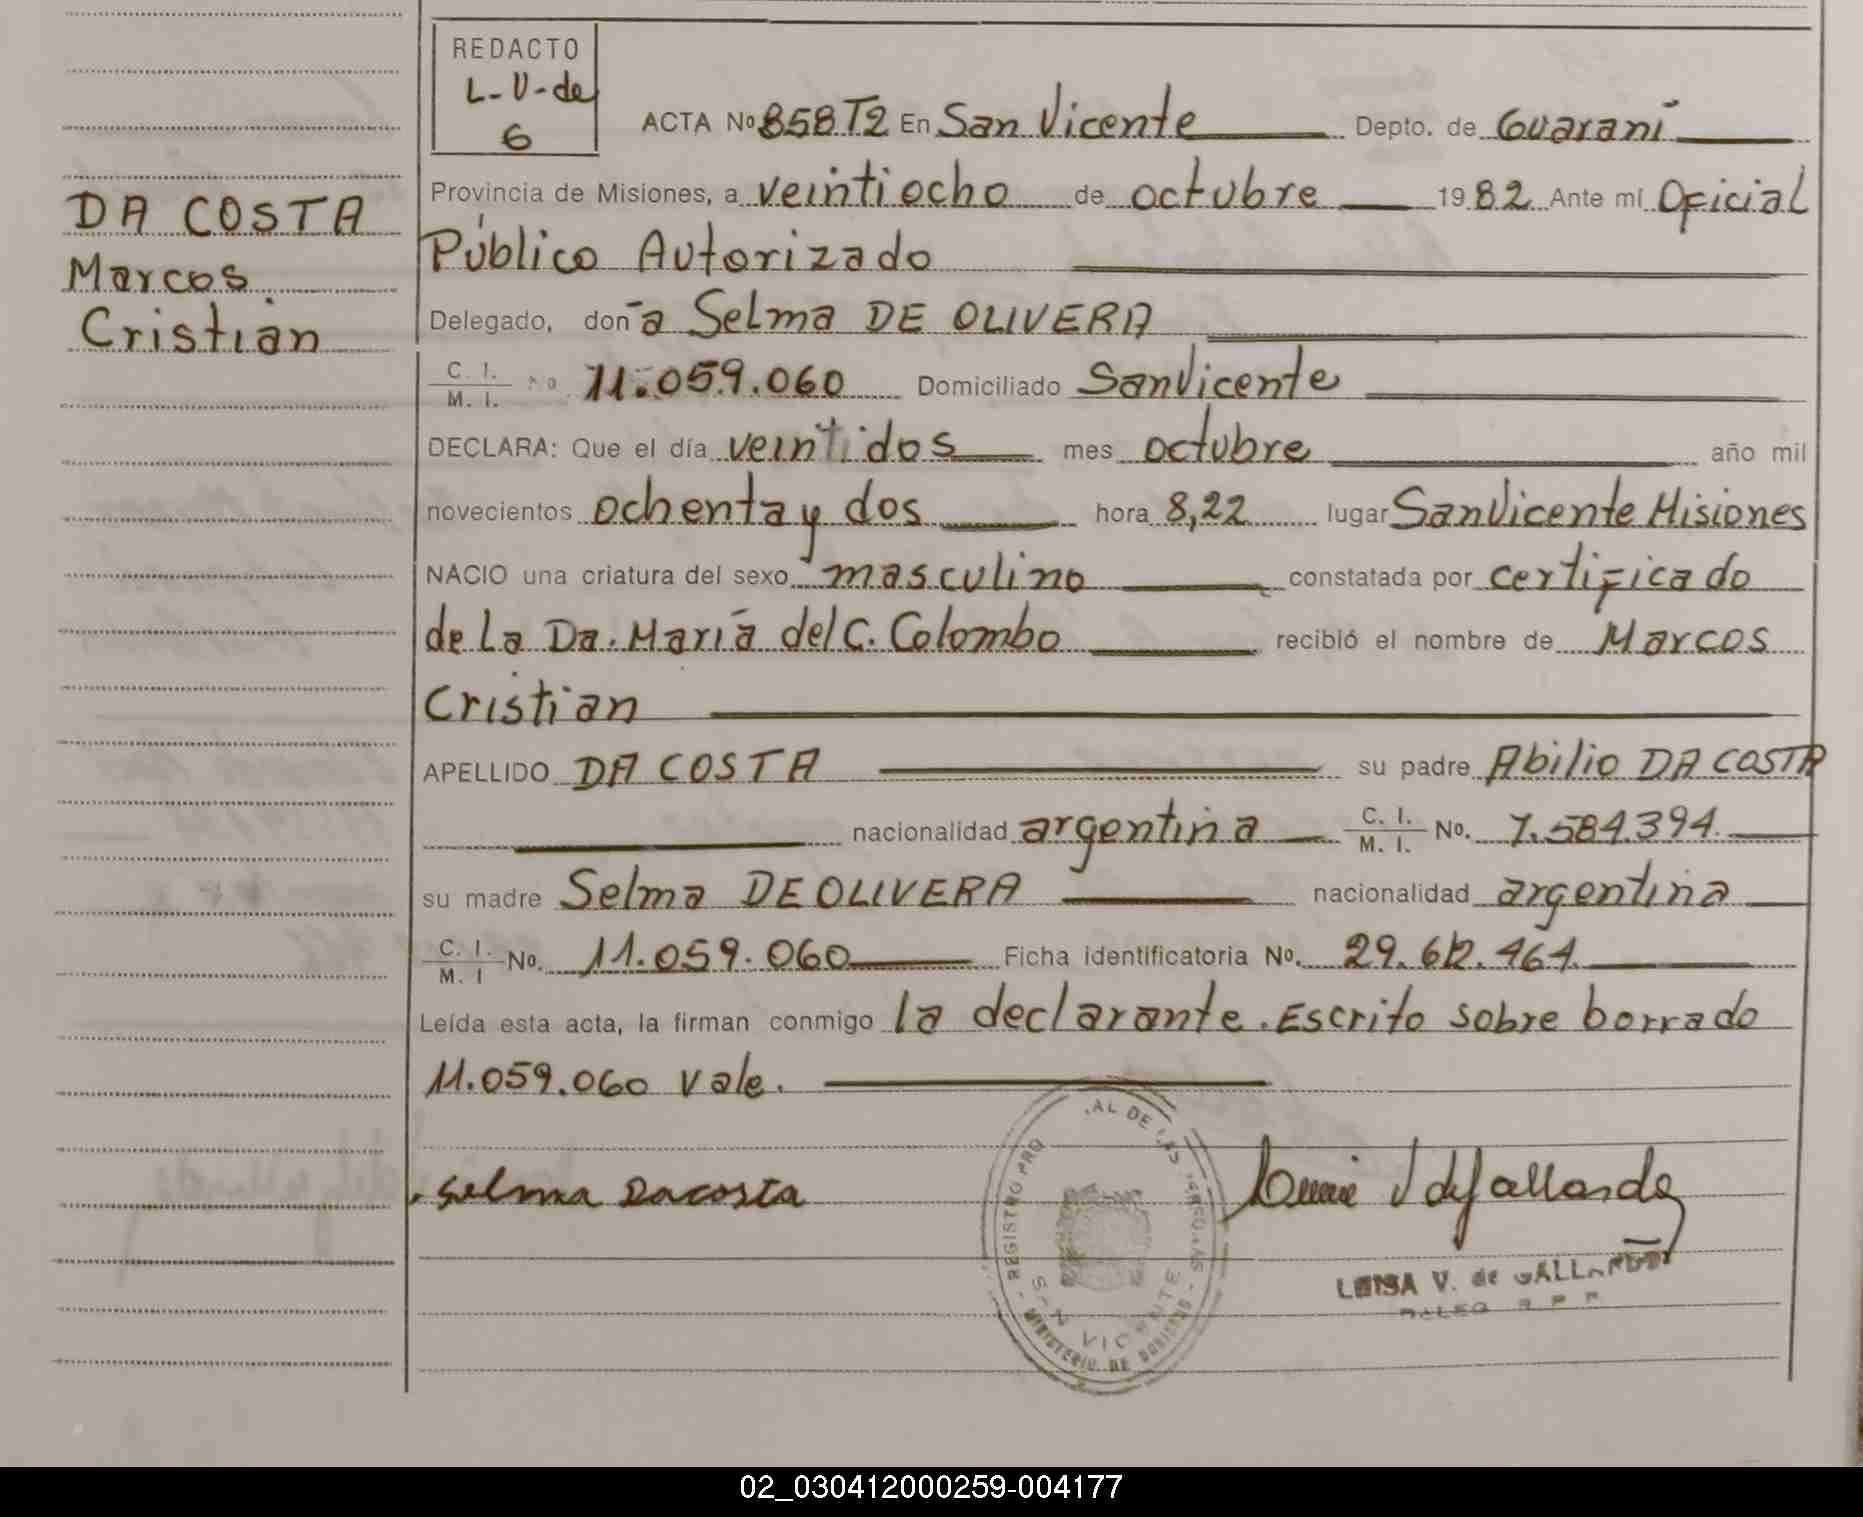 REDACTO
L-V-de
G
ACTA Nº 858T2 En San Vicente Depto. de Guaraní
DA COSTA
Marcos
Cristian
Provincia de Misiones, a veintiocho de octubre 1982 Ante mí Oficial
Público Autorizado
Delegado, doña Selma DE OLIVERA
C. I. / M. I. No 11.059.060 Domiciliado San Vicente
DECLARA: Que el día veintidos mes octubre año mil
novecientos ochenta y dos hora 8,22 lugar San Vicente Misiones
NACIO una criatura del sexo masculino constatada por certificado
de la Da. María del C. Colombo recibió el nombre de Marcos
Cristian
APELLIDO DA COSTA su padre Abilio DA COSTA
nacionalidad argentina C. I. / M. I. No. 7.584.394
su madre Selma DE OLIVERA nacionalidad argentina
C. I. / M. I No. 11.059.060 Ficha identificatoria No. 29.612.464
Leída esta acta, la firman conmigo la declarante. Escrito sobre borrado
11.059.060 vale.
Selma Dacosta
REGISTRO PRO AL DE LAS
SAN VICENTE
MINISTERIO DE GOBIERNO
LUISA V. de GALLARDO
02_030412000259-004177